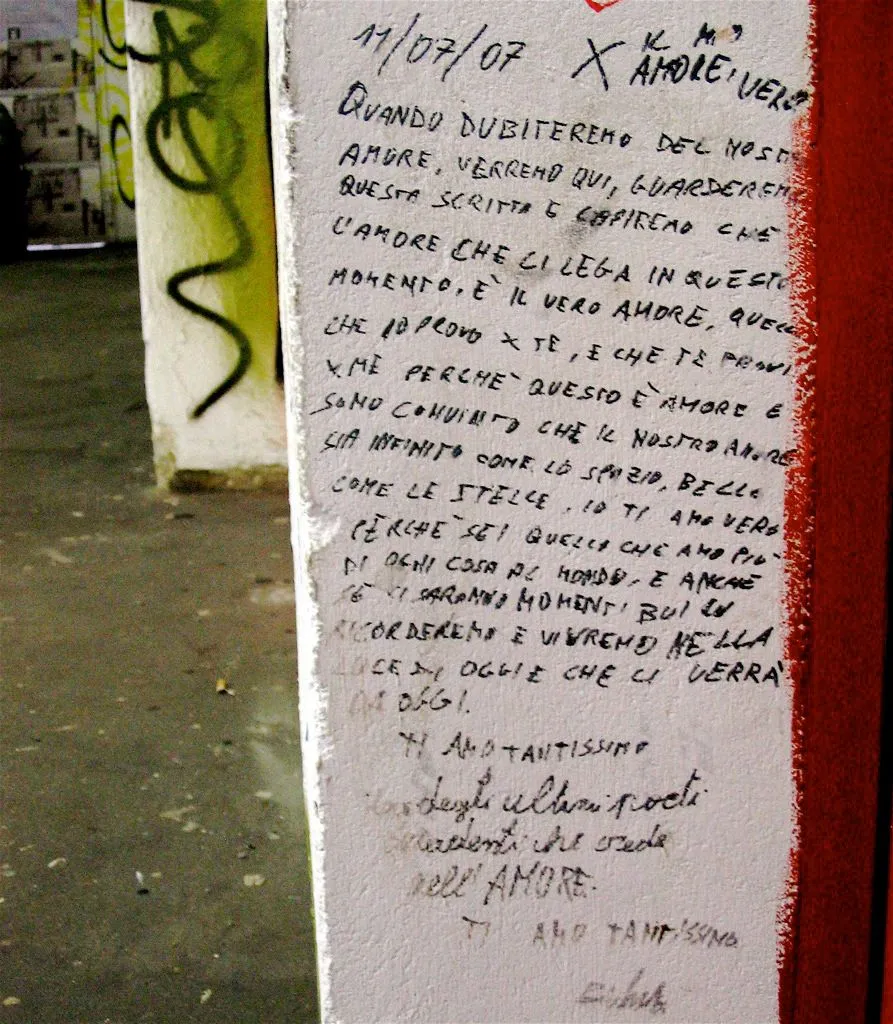 11/07/07 X IL M°
AMORE, VERO
QUANDO DUBITEREMO DEL NOSTR
AMORE, VERREMO QUI, GUARDEREM
QUESTA SCRITTA E CAPIREMO CHE
L'AMORE CHE CI LEGA IN QUESTO
MOMENTO, E' IL VERO AMORE, QUELL
CHE IO PROVO X TE, E CHE TE PROVI
X ME PERCHE' QUESTO E' AMORE E
SONO CONVINTO CHE IL NOSTRO AMORE
SIA INFINITO COME LO SPAZIO, BELLO
COME LE STELLE, IO TI AMO VERO
PERCHE' SEI QUELLO CHE AMO PIU'
DI OGNI COSA AL MONDO, E ANCHE
SE CI SARANNO MOMENTI BUI LI
RICORDEREMO E VIVREMO NELLA
LUCE DI OGGI E CHE CI VERRÀ
DA OGGI.
TI AMO TANTISSIMO
degli ultimi poeti
decadenti che crede
nell'AMORE.
TI AMO TANTISSIMO